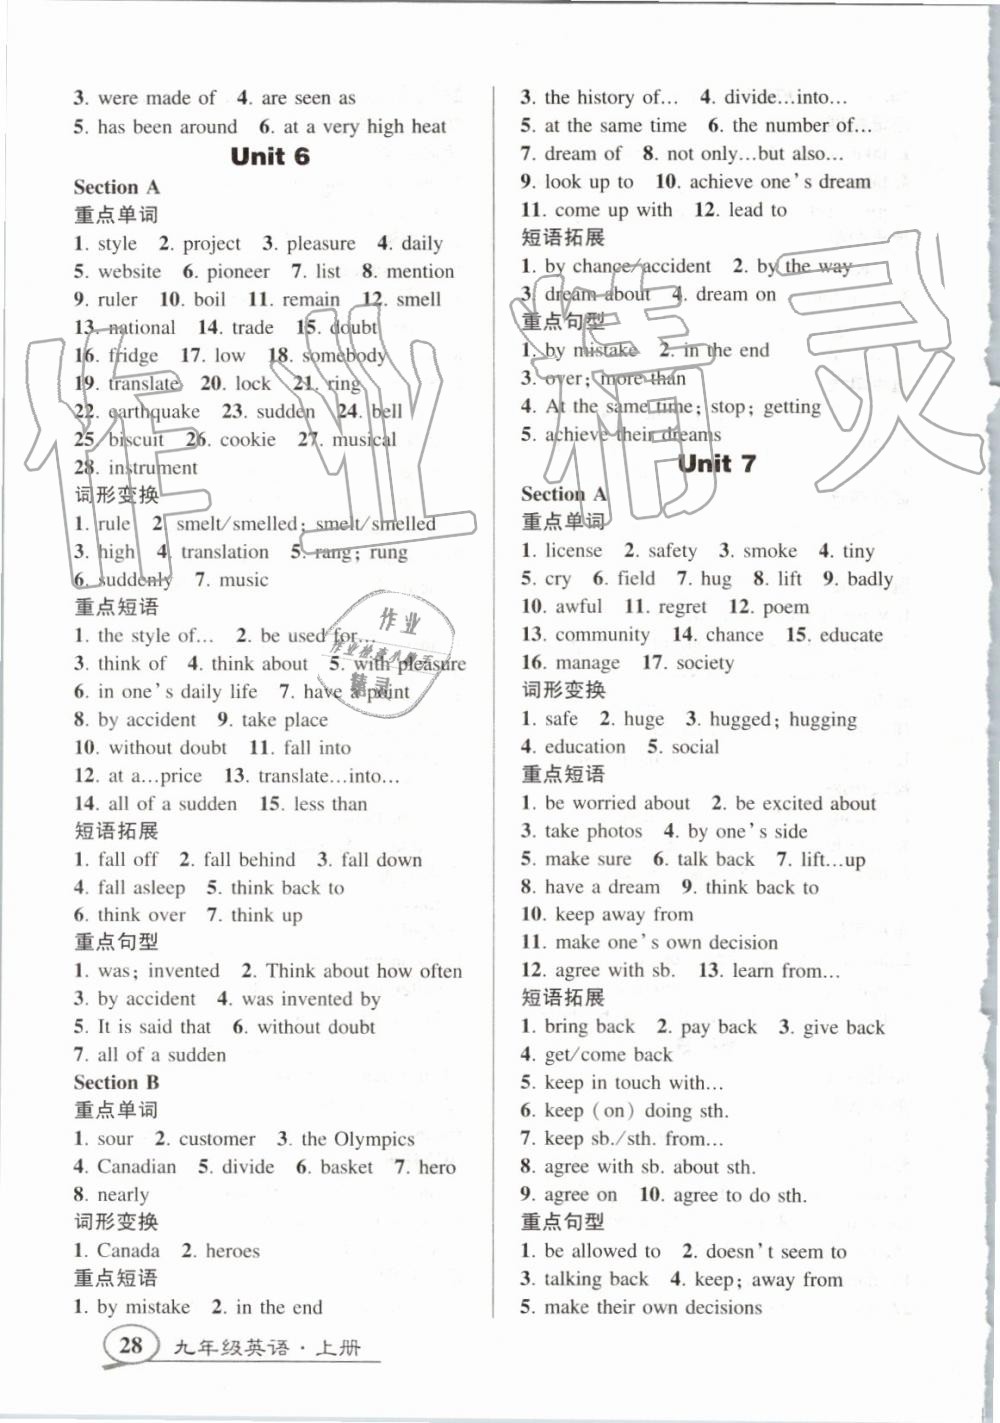 3. were made of 4. are seen as
5. has been around 6. at a very high heat
Unit 6
Section A
重点单词
1. style 2. project 3. pleasure 4. daily
5. website 6. pioneer 7. list 8. mention
9. ruler 10. boil 11. remain 12. smell
13. national 14. trade 15. doubt
16. fridge 17. low 18. somebody
19. translate 20. lock 21. ring
22. earthquake 23. sudden 24. bell
25. biscuit 26. cookie 27. musical
28. instrument
词形变换
1. rule 2. smelt/smelled; smelt/smelled
3. high 4. translation 5. rang; rung
6. suddenly 7. music
重点短语
1. the style of… 2. be used for…
3. think of 4. think about 5. with pleasure
6. in one's daily life 7. have a point
8. by accident 9. take place
10. without doubt 11. fall into
12. at a…price 13. translate…into…
14. all of a sudden 15. less than
短语拓展
1. fall off 2. fall behind 3. fall down
4. fall asleep 5. think back to
6. think over 7. think up
重点句型
1. was; invented 2. Think about how often
3. by accident 4. was invented by
5. It is said that 6. without doubt
7. all of a sudden
Section B
重点单词
1. sour 2. customer 3. the Olympics
4. Canadian 5. divide 6. basket 7. hero
8. nearly
词形变换
1. Canada 2. heroes
重点短语
1. by mistake 2. in the end
3. the history of… 4. divide…into…
5. at the same time 6. the number of…
7. dream of 8. not only…but also…
9. look up to 10. achieve one's dream
11. come up with 12. lead to
短语拓展
1. by chance/accident 2. by the way
3. dream about 4. dream on
重点句型
1. by mistake 2. in the end
3. over; more than
4. At the same time; stop; getting
5. achieve their dreams
Unit 7
Section A
重点单词
1. license 2. safety 3. smoke 4. tiny
5. cry 6. field 7. hug 8. lift 9. badly
10. awful 11. regret 12. poem
13. community 14. chance 15. educate
16. manage 17. society
词形变换
1. safe 2. huge 3. hugged; hugging
4. education 5. social
重点短语
1. be worried about 2. be excited about
3. take photos 4. by one's side
5. make sure 6. talk back 7. lift…up
8. have a dream 9. think back to
10. keep away from
11. make one's own decision
12. agree with sb. 13. learn from…
短语拓展
1. bring back 2. pay back 3. give back
4. get/come back
5. keep in touch with…
6. keep (on) doing sth.
7. keep sb./sth. from…
8. agree with sb. about sth.
9. agree on 10. agree to do sth.
重点句型
1. be allowed to 2. doesn't seem to
3. talking back 4. keep; away from
5. make their own decisions
28 九年级英语·上册
作业精灵
作业
精灵